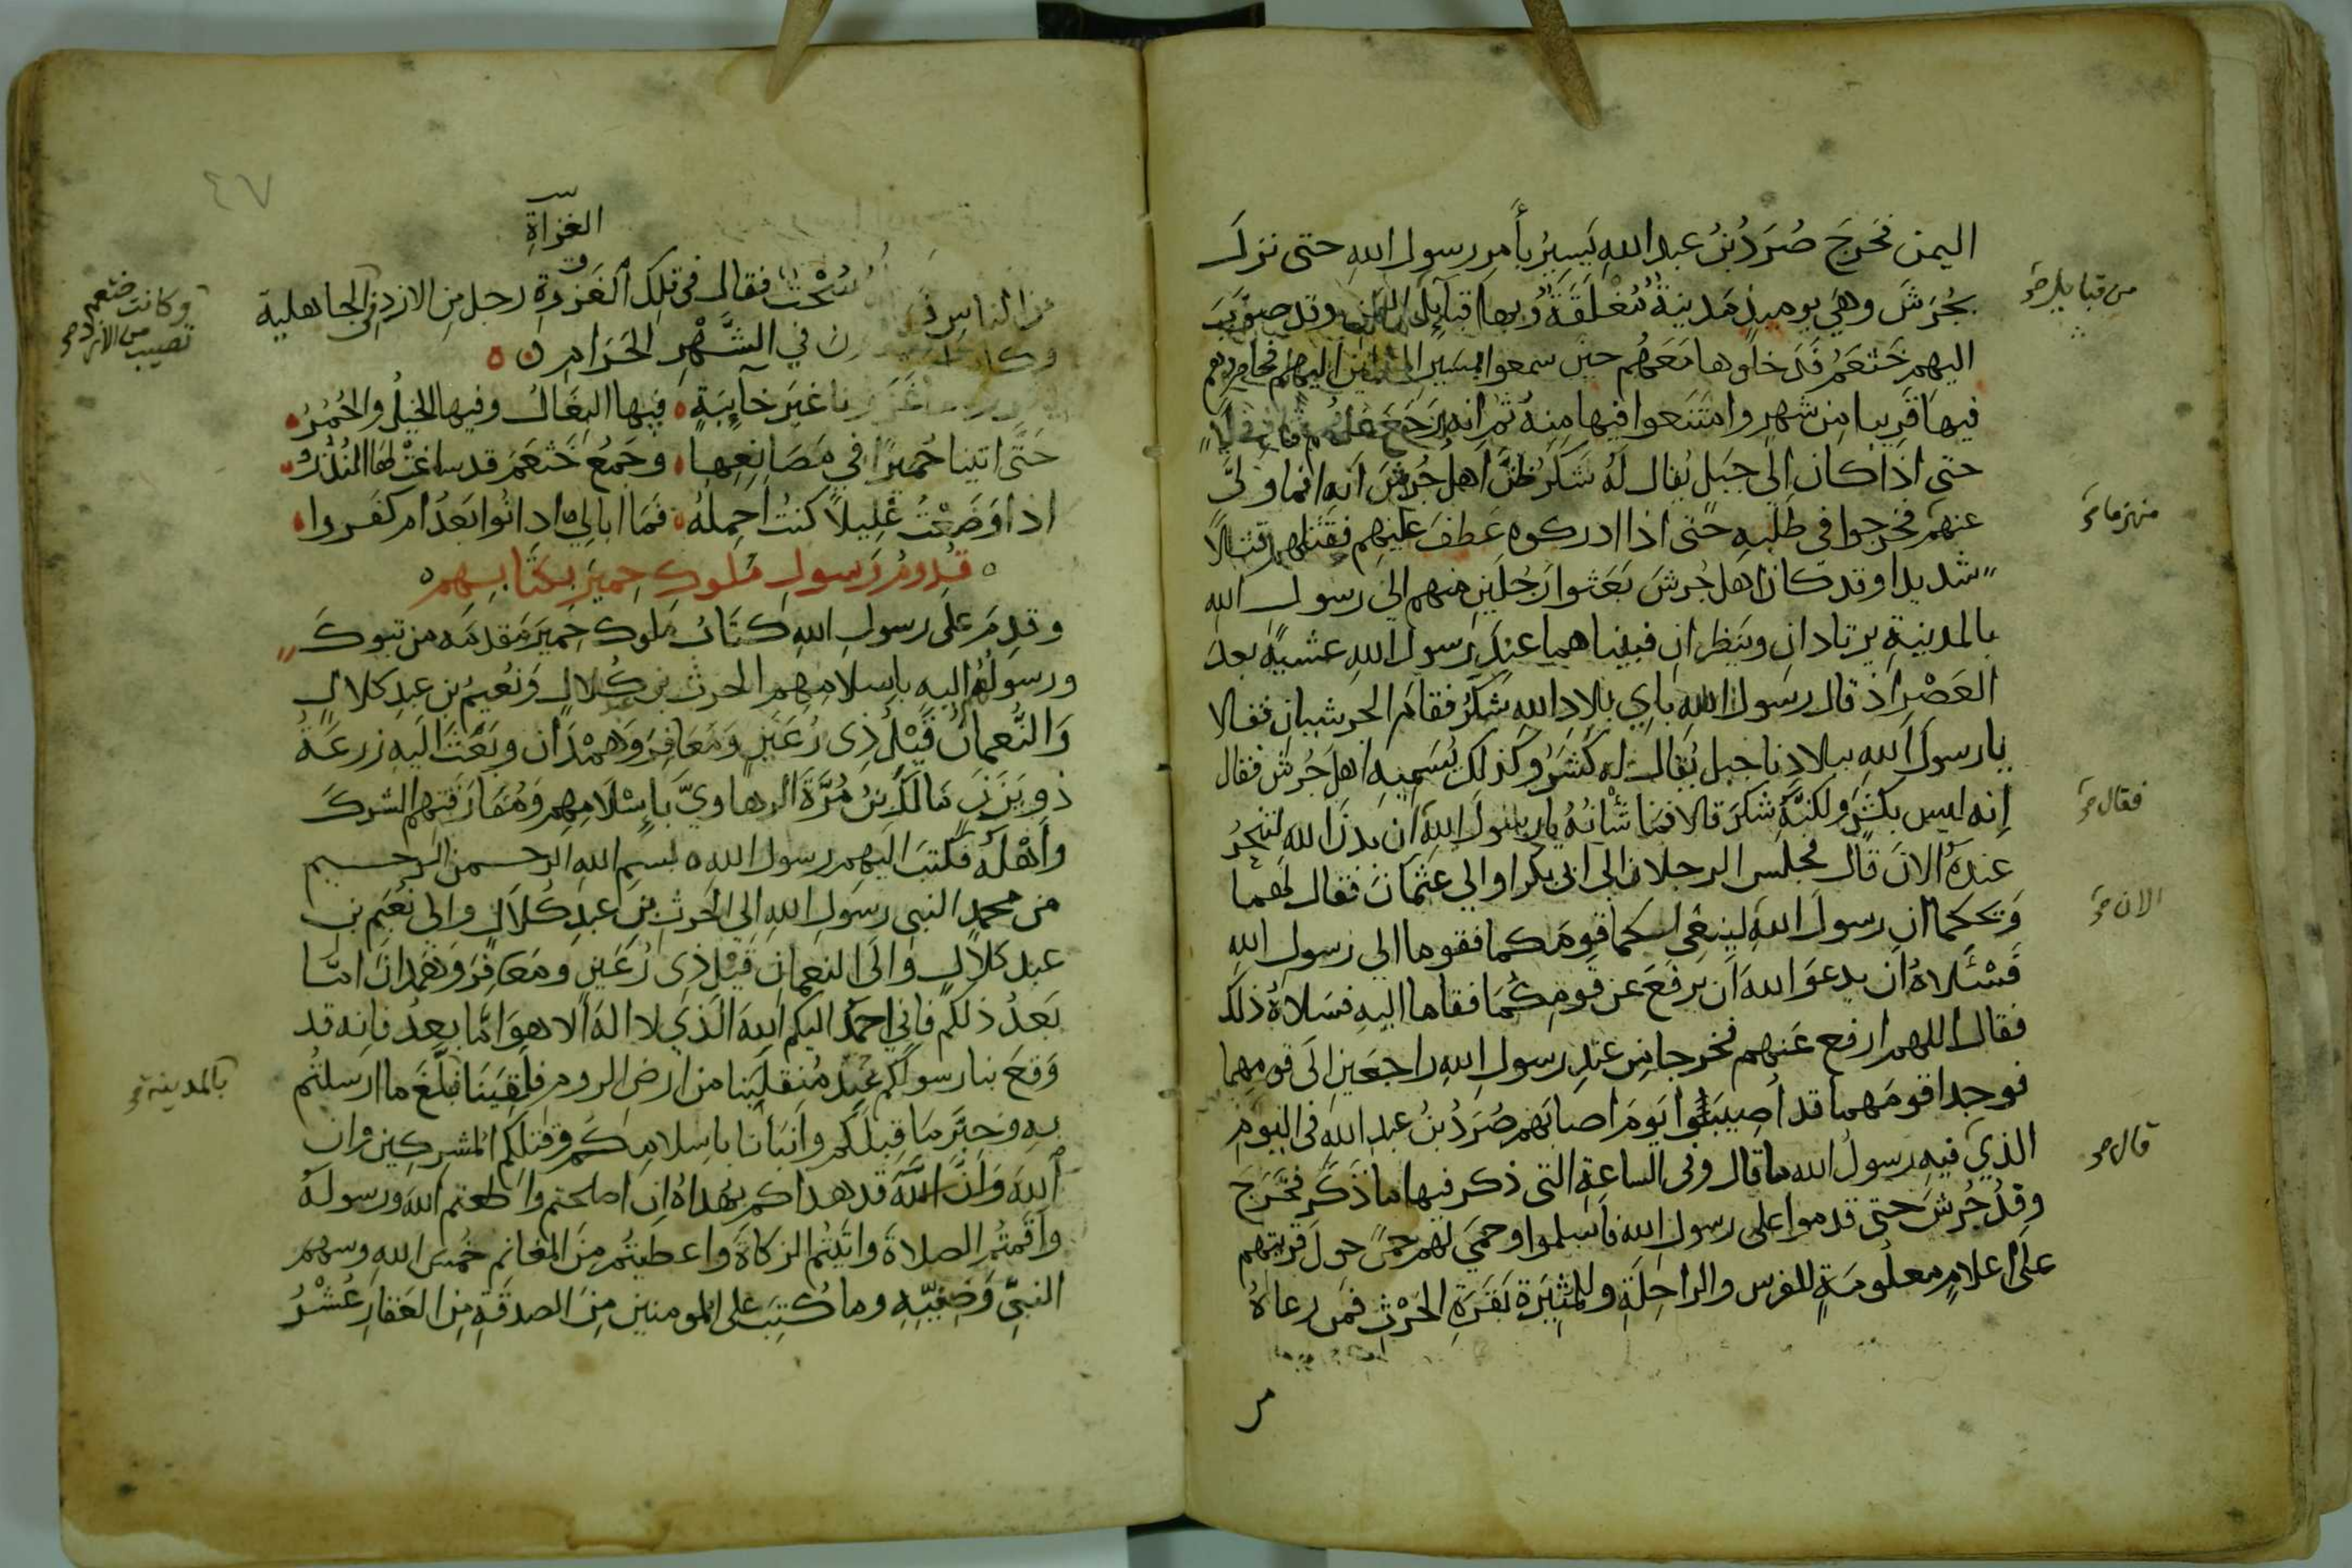 اليمن فخرج صُرَدُ بنُ عبد الله يَسِيرُ بأمر رسول الله حتى نزلَ
بجُرَشَ وهي يوميذٍ مَدينةٌ مُغْلَقَةٌ وبها قبايل اليمن وقد ضوت
من قبايل صح
اليهم خَثْعَمُ فَدخلوها مَعَهُم حين سمعوا بمسير المسلمين اليهم فحاصروهم
فيها قَريبا من شهرٍ وامتنعوا فيها منه ثم انه رَجَعَ عنهم قافلا
حتى اذا كان الى جبل يُقال له شَكَرُ ظنَّ اهلُ جُرَشَ انه انما ولّى
عنهم فخرجوا في طلبه حتى اذا ادركوه عَطفَ عليهم فقتلهم قتالًا
منهزما صح
شديدا وقد كان اهل جُرشَ بَعَثوا رَجُلَينِ منهم الى رسول الله
بالمدينة يرتادان وينظران فبينا هما عند رسول الله عشيةً بعد
العَصْرِ اذ قال رسول الله باي بلاد الله شَكَرُ فقام الجرشيان فقالا
يا رسولَ الله ببلادنا جبل يُقال له كَشَرُ وكذلك يُسَمّيه اهل جُرَش فقال
إنه ليس بكَشَر ولكنَّه شكَر قالا فما شأنُهُ يا رسول الله ان بدن الله لتُنحَرُ
فقال صح
عنده الان قال فجلس الرجلان الى ابى بكر او الى عثمان فقال لهما
الان صح
وَيحَكما ان رسولَ الله لينعى لكما قومَكما فقوما الى رسول الله
فَسْئَلاهُ ان يدعوَ الله ان يرفعَ عن قومِكُمَا فقاما اليه فسَلاهُ ذلك
فقال اللهم ارفع عَنهم فخرجا من عندِ رسولِ اللهِ راجعَينِ الى قومِهِما
فوجدا قومَهما قد أصيبوا يَومَ اصابَهم صُرَدُ بنُ عبد الله في اليوم
الذي فيه رسولُ الله ما قال وفى الساعة التى ذكر فيها ما ذَكَر فخرج
قال صح
وفدُ جُرشَ حتى قدموا على رسول الله فاسلموا وحَمَى لهم حِمًى حولَ قريتهم
على اعلامٍ معلُومةٍ للفرس والراحِلَةِ وللمُثِيرَةِ بَقَرَةِ الحَرْثِ فمَن رعاهُ
٤٧
الغزاةِ
من الناس سُحْتٌ فقال في تلك الغَزوةِ رجل من الازد في الجاهلية
وكانت خثعم
تصيب من الازد صح
في الشَّهْرِ الحَرَامِ
غَزَونا غيرَ خآيبَةٍ فيها البغالُ وفيها الخيلُ والحُمُرُ
حَتَّى اتينا حُمَيرًا في مَصَانِعِها وجَمْعُ خَثعَمَ قد ساغت لها النُّذُرُ
اذا وَضَعْتُ غَليلًا كنتُ احمِلهُ فما ابالي ادانُوا بَعدُ ام كفَروا
قُدومُ رَسولِ مُلوكِ حِميَر بكتابهم
وقدِمَ على رسولِ الله كتابُ ملوك حِميَر مَقدَمَه من تبوكَ
ورسولُهُم اليه باسلامِهِم الحرث بن كُلالٍ ونُعيمُ بن عبد كلالٍ
وَالنُّعمانُ قَيْلُ ذِى رُعَينٍ وَمَعَافِرَ وَهَمْدان وبَعَثَ اليه زرعَةُ
ذو يَزَنٍ مالكَ بنُ مُرَّةَ الرهاويَّ بإسْلامِهِم وَمُفارَقتهم الشركَ
وأهْلَهُ فكتب اليهم رسول الله بسم الله الرحمن الرحيم
من محمدٍ النبى رسولِ الله الى الحَرثِ بنِ عبد كُلالٍ والى نُعَيم بنِ
عبد كلالٍ والى النعمانِ قَيْلِ ذى رُعَينٍ ومَعافِرَ وهَمدانَ امّا
بَعدُ ذلكم فانّي احمَدُ اليكم الله الَّذي لا اله الا هو امّا بعدُ فانه قد
وَقعَ بنا رسولُكم عند مُنقَلَبِنا من ارض الروم فلَقِيَنَا فبَلَّغَ ما ارسلتُم
بالمدينة صح
به وخبَّر ما قِبلَكم وانبَأنا باسلامِكُم وقتلِكم المشركين وان
اللهَ وَانَّ اللهَ قد هداكم بهُداهُ ان اصلحتم واطعتم الله ورسوله
واَقَمتُم الصلاةَ واتَيتُم الزكاةَ واعطيتُم مِنَ المغانم خُمسَ الله وسهم
النبىّ وَصَفِيِّه وما كُتِبَ على المومنين مِنَ الصدقَةِ من العَقارِ عُشْرُ